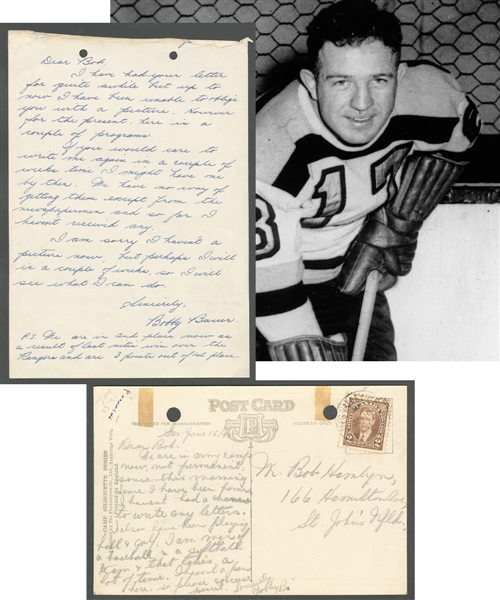 Dear Bob,
I have had your letter
for quite awhile but up to
now I have been unable to oblige
you with a picture. However
for the present, here is a
couple of programs.
If you would care to
write me again in a couple of
weeks time I might have one
by then. We have no way of
getting them except from the
newspapermen, and so far I
havent received any.
I am sorry I havent a
picture now, but perhaps I will
in a couple of weeks, so I will
see what I can do.
Sincerely,
Bobby Bauer.
P.S. We are in 2nd place now as
a result of last nites win over the
Rangers and are 3 points out of 1st place.
17
8
POST CARD
ADDRESS ONLY
CAMP SILHOUETTE SERIES
June 15
Dear Bob:
We are in army camp
now, not permanent,
since I have been
I havent had a chance
to write any letters.
also have been playing
ball & golf. I am mgr of
a baseball & a softball
team & that takes a
lot of time.
here, so please excuse
Bobby
M. Bob Hamlyn,
166 Hamilton Ave
St. John's Nfld.
2